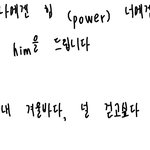 나에겐 힘 (power) 너에겐
him을 드립니다
내 겨울바다, 널 걷고보다